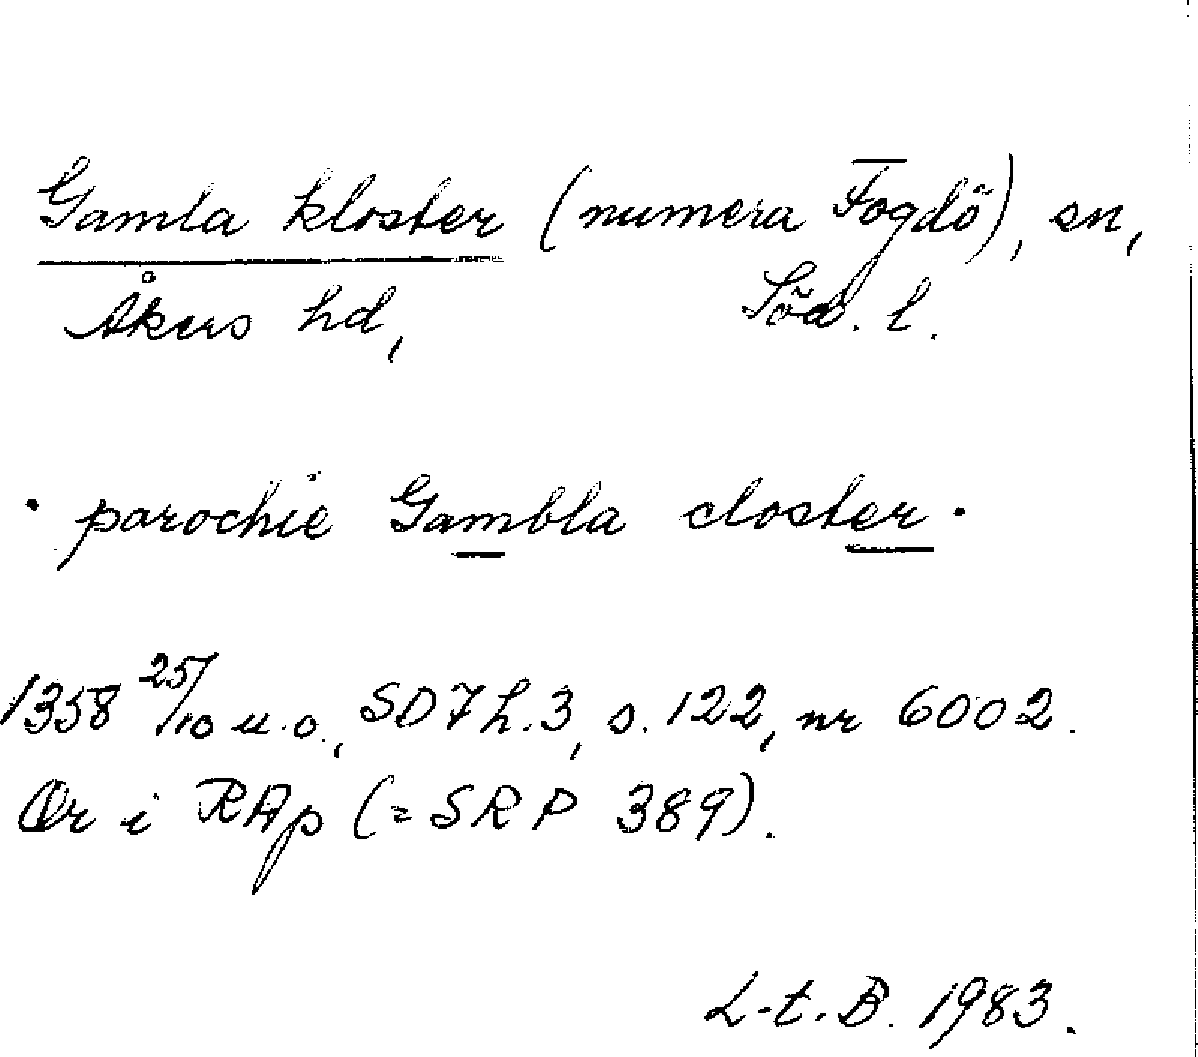 Gamla kloster (numera Fogdö), sn,
Åkers hd, Söd. l.
· parochie Gambla closter ·
1358 25/10 u.o., SD 7 h. 3, s. 122, nr 6002.
Or i RAp (= SRP 389).
L-t. B. 1983.